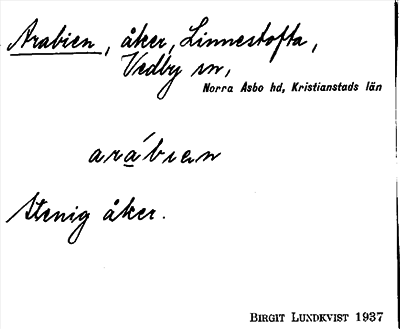 Arabien, åker, Linnestofta,
Vedby sn,
Norra Åsbo hd, Kristianstads län
arábien
Stenig åker.
BIRGIT LUNDKVIST 1937